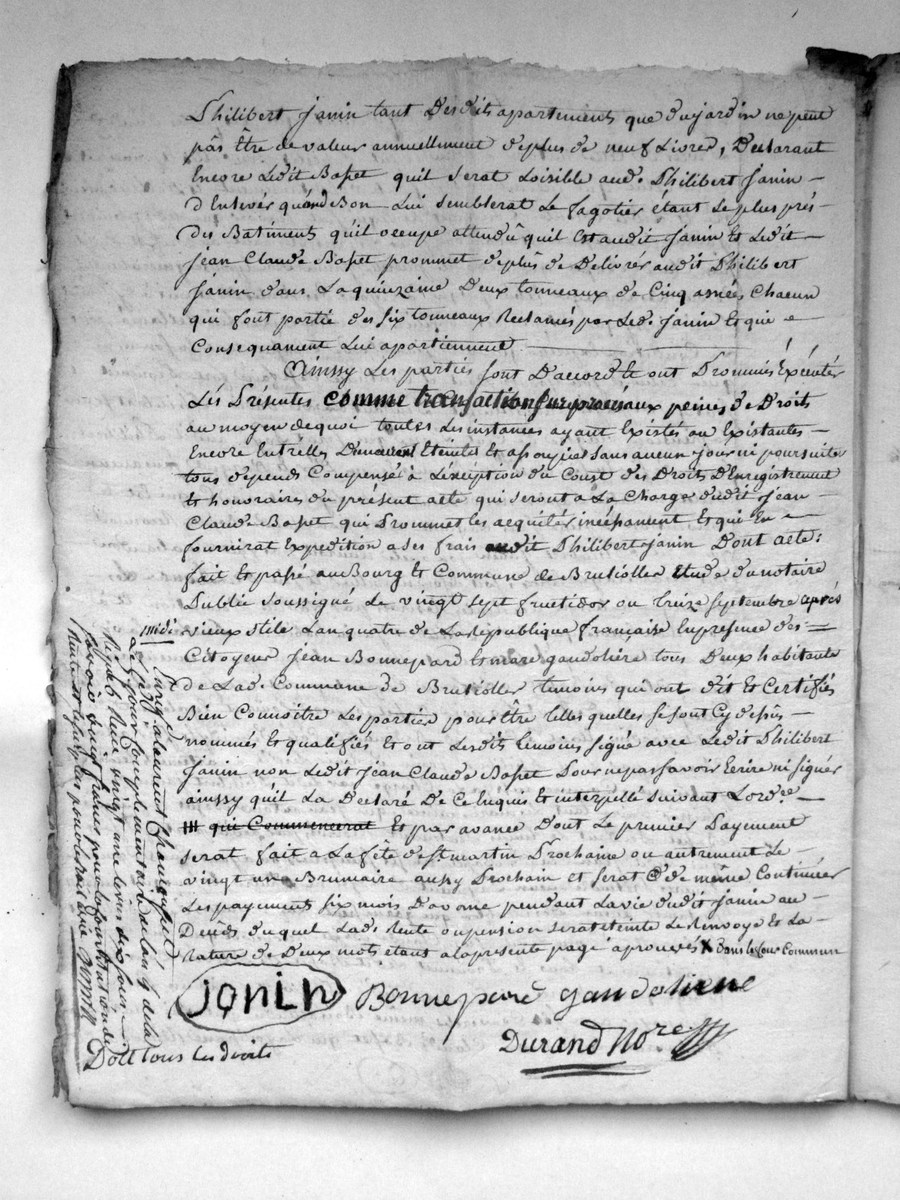 Philibert Janin tant Desdits apartements que dujardin ne peut
pas Être de valeur annuellement deplus de neuf Livres, Declarant
Encore Ledit Basset quil serat Loisible aud. Philibert Janin
d'Enlever quand Bon Lui semblerat Le fagotier étant Le plus prés
des Batiments quil occupe attendû quil Est audit Janin Et Ledit
Jean Claude Basset prommet deplus de Delivrér audit Philibert
Janin dans La quinzaine Deux tonneaux de Cinq asnées Chacun
qui font partie des six tonneaux Reclamés par Led. Janin Et qui
Consequament Lui apartiennent
Ainssy Les parties sont D'accord Et ont Prommis Éxécuter
Les Présentes comme transaction sur procès aux peines de Droits
au moyen dequoi toutes Les instances ayant Existés ou Existantes
Encore Entr'elles Demeurent Eteintes Et assoupies sans aucun jour ni poursuite
tous depends Compensé à L'éxeption du Coust des Droits D'Enregistrement
Et honoraires du présent acte qui seront a La Charge dudit Jean
Claude Basset qui Prommet les acquiter incéssament Et qui En
fournirat Expedition a ses frais audit Philibert Janin Dont acte:
fait Et passé au Bourg Et Commune de Brusiolles Etude du notaire
Public soussigné Le vingt sept fructidor ou treize septembre après
midi
vieux stile Lan quatre de La République française En presence des
Citoyens Jean Bonnepard Et marc gandoliere tous Deux habitants
de Lad. Commune de Brusiolles temoins qui ont dit Et Certifiés
Bien Connoitre Les parties pour être telles quelles se sont Cy dessus
nommés Et qualifiés Et ont Lesdits temoins signé avec Ledit Philibert
Janin non Ledit Jean Claude Basset Pour ne pas savoir Ecrire ni signer
ainssy quil La Declaré De Ce Enquis Et interpellé suivant Lord.ce
qui Commencerat Et par avance Dont Le premier Payement
serat fait a La fête de st martin Prochaine ou autrement Le
vingt un Brumaire aussy Prochain Et serat de même Continuér
Les payements six mois d'avance pendant La vie dudit Janin au
Decès duquel Lad. Rente ou pension serat éteinte Le Renvoye Et La
Rature de Deux mots étant a La presente page aprouvés X Dans le four Commun
Janin Bonnepard gandoliere
Durand No.re
Enreg. a Laurent Chamousset
Le 4.e jour complementaire de L'an 4 de la
Répub.
Dont tous les droits